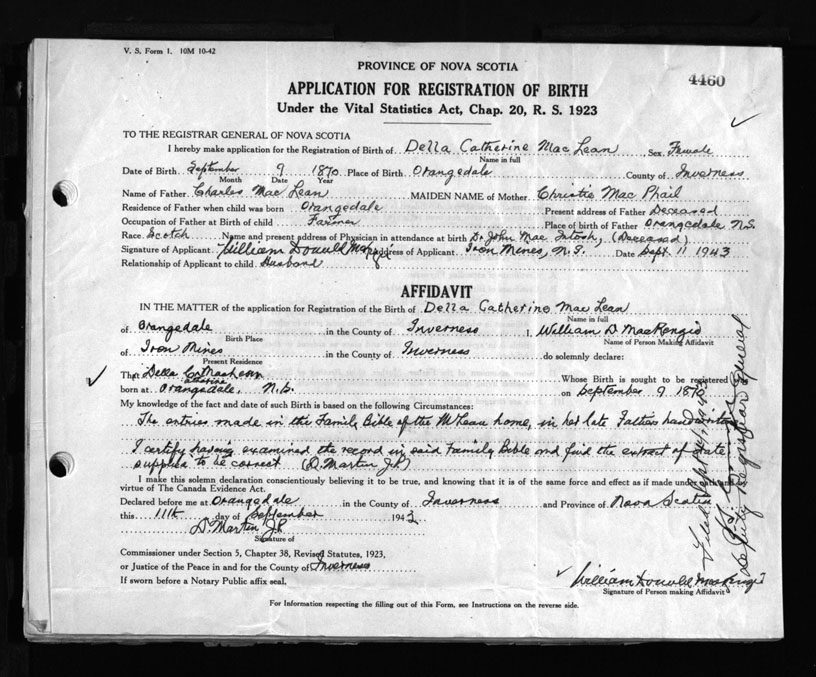 V. S. Form 1. 10M 10-42
PROVINCE OF NOVA SCOTIA
4460
APPLICATION FOR REGISTRATION OF BIRTH
Under the Vital Statistics Act, Chap. 20, R. S. 1923
TO THE REGISTRAR GENERAL OF NOVA SCOTIA
I hereby make application for the Registration of Birth of Della Catherine Mac Lean Sex Female
Name in full
Date of Birth September 9 1870 Place of Birth Orangedale County of Inverness
Month Date Year
Name of Father Charles Mac Lean MAIDEN NAME of Mother Christie Mac Phail
Residence of Father when child was born Orangedale Present address of Father Deceased
Occupation of Father at Birth of child Farmer Place of birth of Father Orangedale N.S.
Race Scotch Name and present address of Physician in attendance at birth Dr John Mac Intosh, (Deceased)
Signature of Applicant William Donald address of Applicant Iron Mines, N.S. Date Sept 11 1943
Relationship of Applicant to child Husband
AFFIDAVIT
IN THE MATTER of the application for Registration of the Birth of Della Catherine Mac Lean
Name in full
of Orangedale in the County of Inverness I, William D. MacKenzie
Birth Place Name of Person Making Affidavit
of Iron Mines in the County of Inverness do solemnly declare:
Present Residence
That Della Catherine MacLean Whose Birth is sought to be registered
born at Orangedale, N.S. on September 9 1870
My knowledge of the fact and date of such Birth is based on the following Circumstances:
The entries made in the Family Bible of the McLean home, in her late Fathers handwriting
I certify having examined the record in said Family Bible and find the extract of date
supplied to be correct (D. Martin J.P.)
I make this solemn declaration conscientiously believing it to be true, and knowing that it is of the same force and effect as if made under oath and by
virtue of The Canada Evidence Act.
Declared before me at Orangedale in the County of Inverness and Province of Nova Scotia
this 11th day of September 1943
D. Martin J.P.
Signature of
Commissioner under Section 5, Chapter 38, Revised Statutes, 1923,
or Justice of the Peace in and for the County of Inverness
If sworn before a Notary Public affix seal.
William Donald MacKenzie
Signature of Person making Affidavit
For Information respecting the filling out of this Form, see Instructions on the reverse side.
Filed Sept
Deputy Registrar General